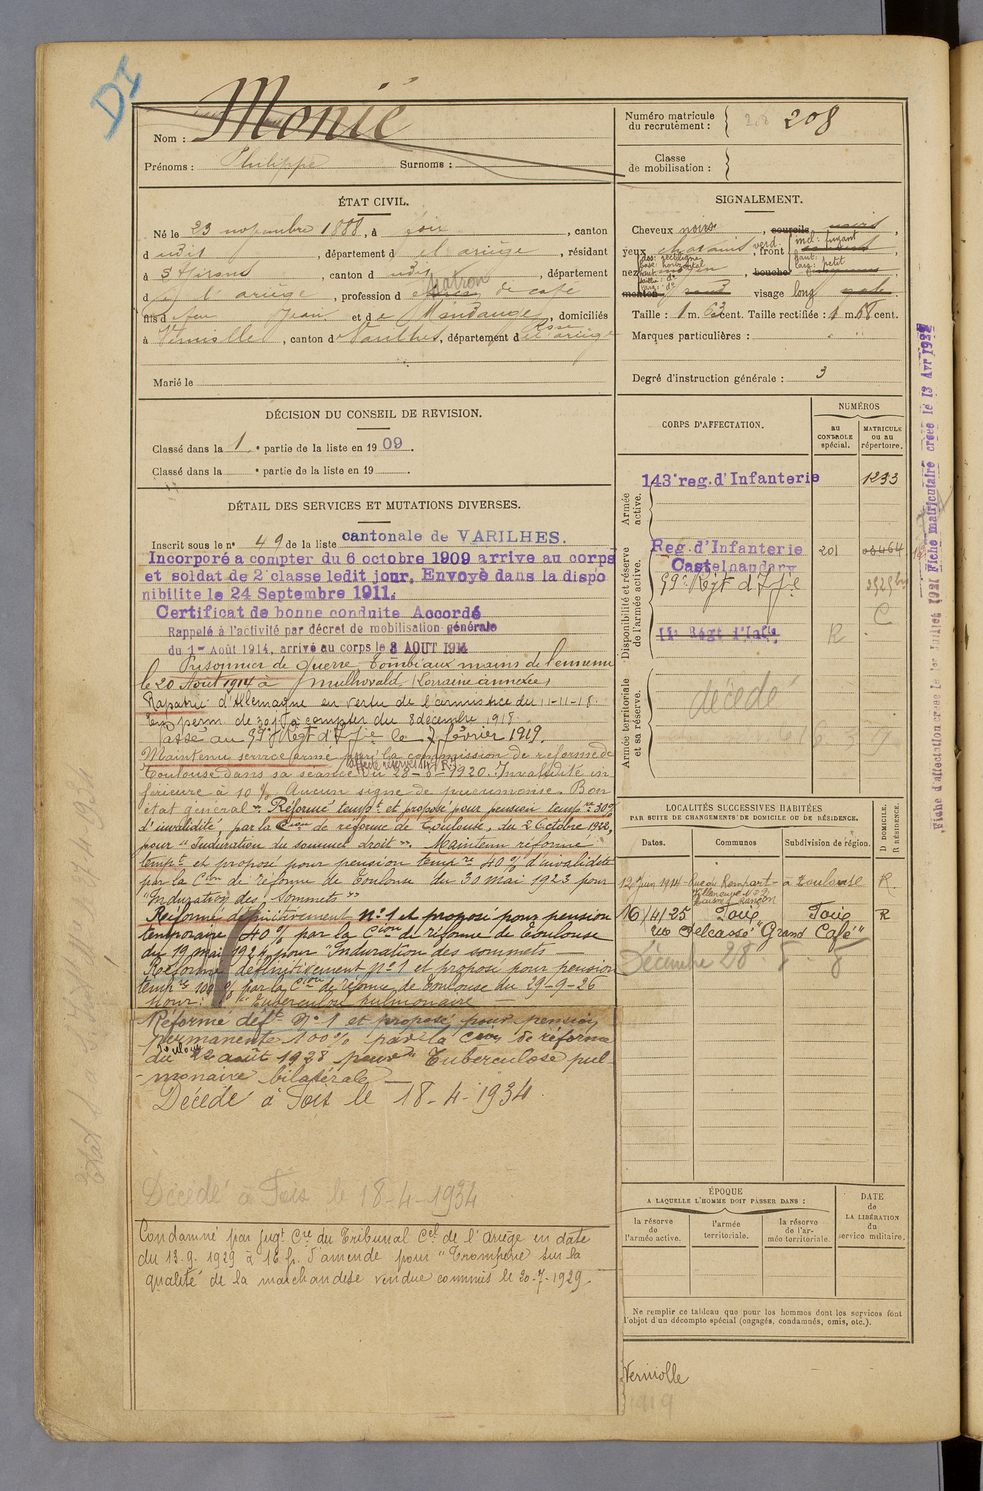 DI
Nom : Monié
Prénoms : Philippe Surnoms :
Numéro matricule du recrutement : 208 208
Classe de mobilisation :
ÉTAT CIVIL.
Né le 23 novembre 1888, à Foix, canton
dudit, département d el'ariège, résidant
à St Girons, canton dudit, département
d el'ariège, profession d Patron de café
fils de feu Jean et de Mandange Rose, domiciliés
à Verniolle, canton de Varilhes, département de l'ariège
Marié le
SIGNALEMENT.
Cheveux noirs, sourcils noirs,
yeux chatains verd., front incl: fuyant
haut:
larg: petit
nez dos: rectiligne
base: horizontal
moyen, bouche
menton rond visage long
Taille : 1 m. 63 cent. Taille rectifiée : 1 m cent.
Marques particulières :
Degré d'instruction générale : 3
DÉCISION DU CONSEIL DE REVISION.
Classé dans la 1e partie de la liste en 1909.
Classé dans la e partie de la liste en 19
DÉTAIL DES SERVICES ET MUTATIONS DIVERSES.
Inscrit sous le n° 49 de la liste cantonale de VARILHES.
Incorporé a compter du 6 octobre 1909 arrive au corps
et soldat de 2e classe ledit jour. Envoyé dans la dispo
nibilite le 24 Septembre 1911.
Certificat de bonne conduite Accordé
Rappelé à l'activité par décret de mobilisation générale
du 1er Août 1914, arrivé au corps le 3 AOUT 1914
Prisonnier de guerre Tombé aux mains de l'ennemi
le 20 Août 1914 à (Lorraine annexée)
Rapatrié d'Allemagne en vertu de l'armistice du 11-11-18.
En perm. de 30 j. à compter du 8 décembre 1918
Passé au 59e Régt d'Ifie le 7 février 1919.
Maintenu service armé par la commission de réforme de
Toulouse dans sa séance du 28-6-1920. Invalidité in
férieure à 10 %. Aucun signe de pneumonie. Bon
état général. Réformé tempt et proposé pour pension tempre 30%
d'invalidité, par la Cion de réforme de Toulouse, du 2 Octobre 1922,
pour "Induration du sommet droit". Maintenu réformé
tempt et proposé pour pension tempre 40 % d'invalidité
par la Cion de réforme de Toulouse du 30 mai 1923 pour
"Induration des sommets"
Réformé définitivement n°1 et proposé pour pension
temporaire 40 % par la Cion de réforme de Toulouse
du 19 mai 1924 pour "Induration des sommets
Réformé définitivement N°1 et proposé pour pension
tempre 100 % par la Cion de réforme de Toulouse du 29-9-26
pour: Tuberculose pulmonaire
Réformé déft N°1 et proposé pour pension
permanente 100 % par la Cion de réforme
Toulouse
du 22 août 1928 pour Tuberculose pul-
monaire bilatérale
Décédé à Foix le 18-4-1934.
Décédé à Foix le 18-4-1934
Condamné par jugt Cre du Tribunal Cel de l'Ariège en date
du 13.9.1929 à 16 f. d'amende pour "Tromperie sur la
qualité de la marchandise vendue commis le 20-7-1929.
CORPS D'AFFECTATION.
NUMÉROS
AU CONTROLE spécial.
MATRICULE ou au répertoire.
Armée active.
143e reg. d'Infanterie 1233
Disponibilité et réserve de l'armée active.
Reg. d'Infanterie 201
Castelnaudary
59e Régt d'Ifie
Régt d'Infie R
C
Armée territoriale et sa réserve.
décédé
LOCALITÉS SUCCESSIVES HABITÉES
PAR SUITE DE CHANGEMENTS DE DOMICILE OU DE RÉSIDENCE.
Dates. Communes Subdivision de région. D DOMICILE. R RÉSIDENCE.
12 juin 1914 Rue du Rempart à Toulouse R.
16/4/25 Foix Foix R
rue Delcassé "Grand Café"
ÉPOQUE
A LAQUELLE L'HOMME DOIT PASSER DANS :
la réserve de l'armée active.
l'armée territoriale.
la réserve de l'armée territoriale.
DATE de LA LIBÉRATION du service militaire.
Ne remplir ce tableau que pour les hommes dont les services font
l'objet d'un décompte spécial (engagés, condamnés, omis, etc.).
Verniolle
1919
Fiche d'affectation créée le 1er Juillet 1921 Fiche matriculaire créée le 13 Avr 1932